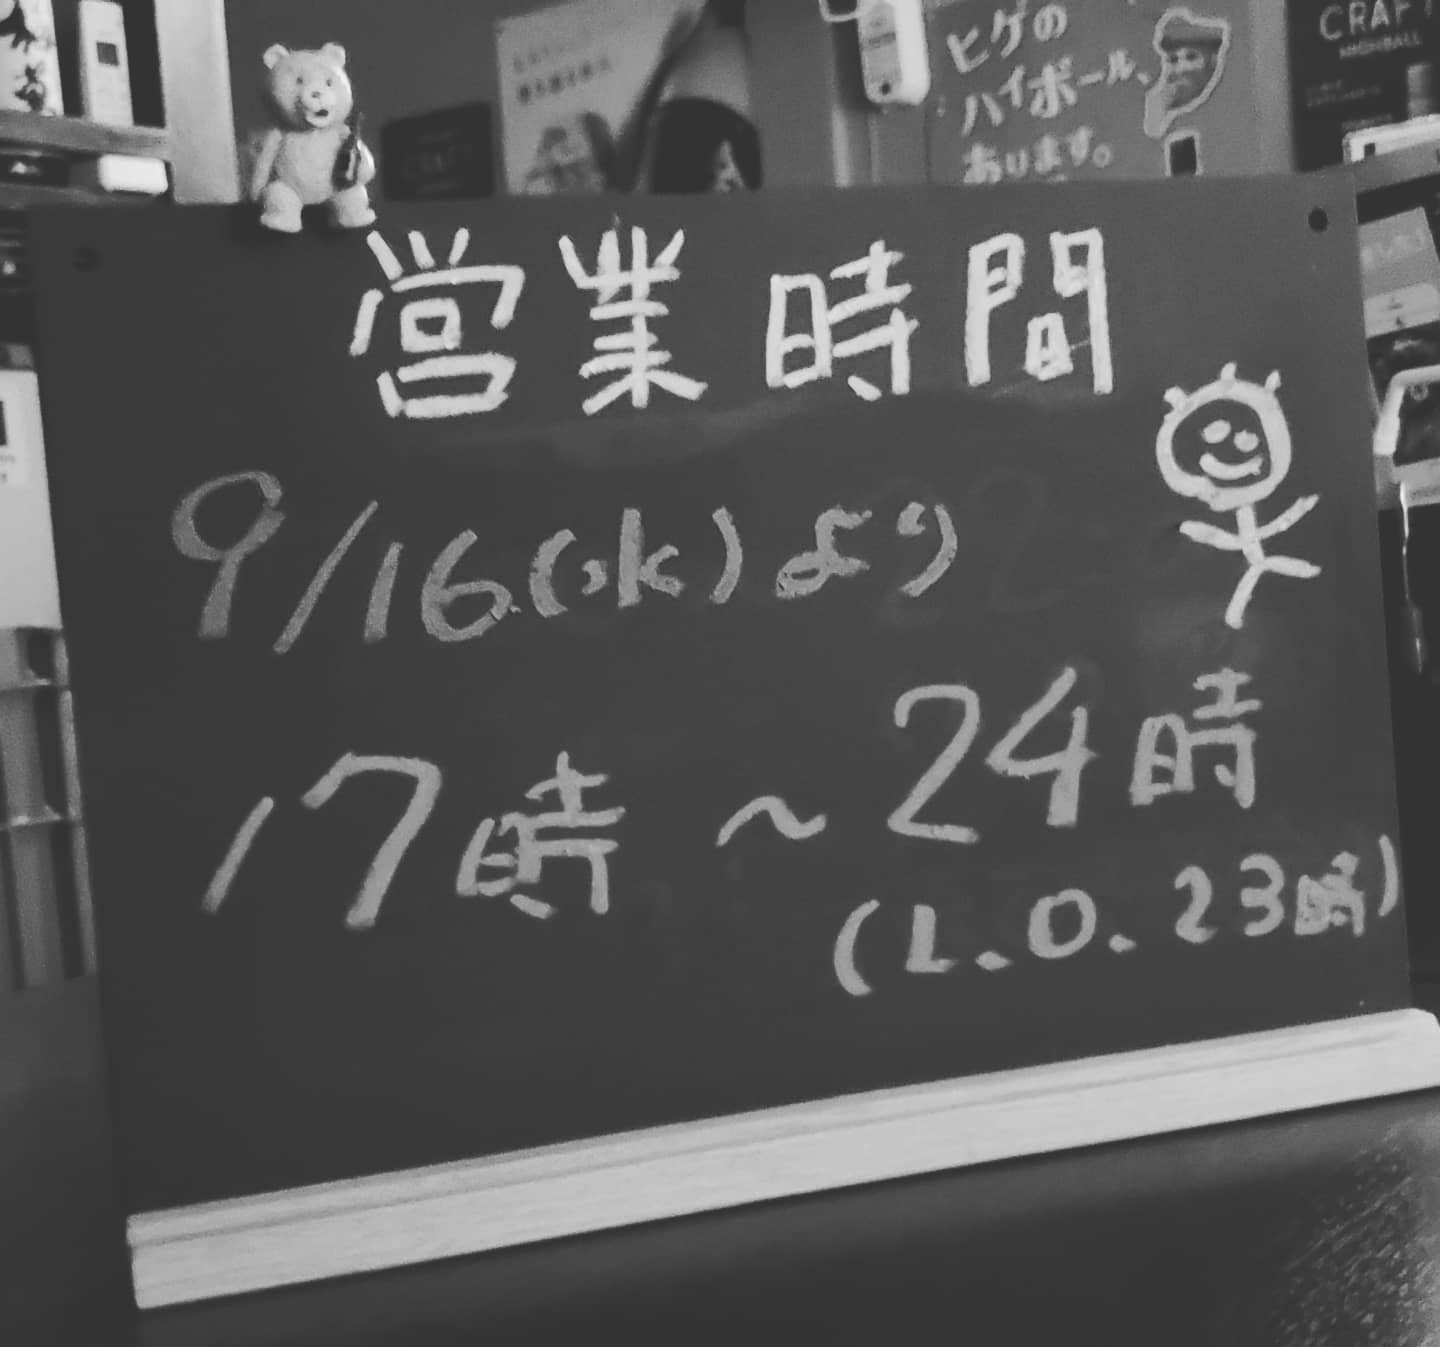 ヒゲの
ハイボール、
あります。
CRAFT
HIGHBALL
営業時間
9/16(水)より
17時〜24時
(L.O.23時)